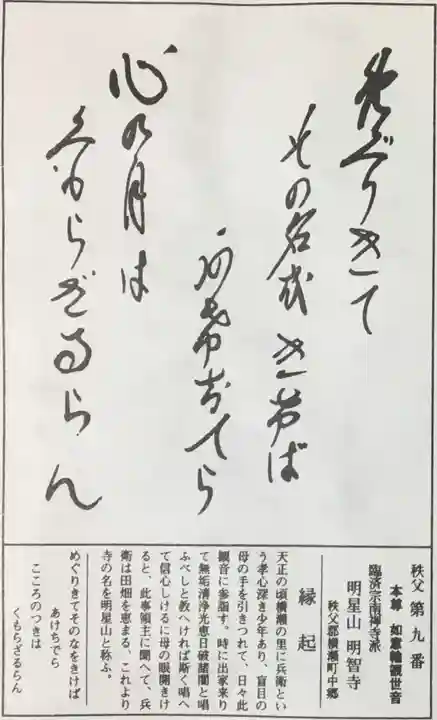 免ぐりきて
その名越きけば
阿希知てら
心の月は
久毛らざるらん
秩父 第九番
本尊 如意輪観世音
臨済宗南禅寺派
明星山 明智寺
秩父郡横瀬町中郷
縁起
天正の頃横瀬の里に兵衛とい
う孝心深き少年あり、盲目の
母の手を引きつれて、日々此
観音に参詣す。時に出家来り
て無垢清浄光恵日破諸闇と唱
ふべしと教へければ斯く唱へ
て信心しけるに母の眼開きけ
ると、此事領主に聞へて、兵
衛は田畑を恵まる、これより
寺の名を明星山と称ふ。
めぐりきてそのなをきけば
あけちでら
こころのつきは
くもらざるらん